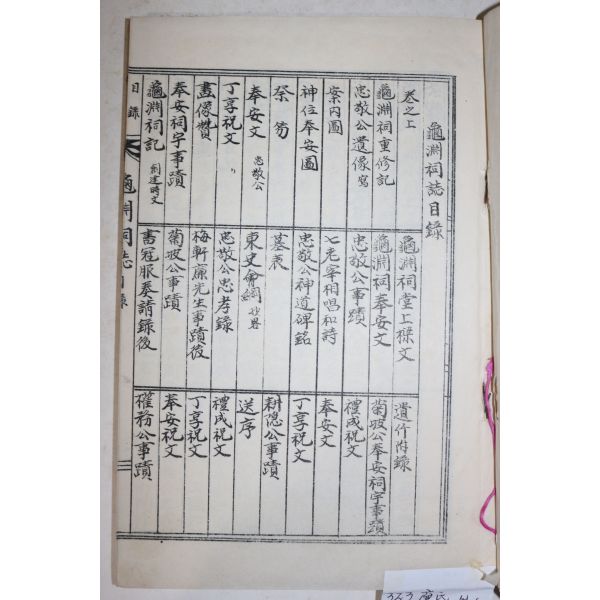 龜淵祠誌目錄
卷之上
龜淵祠重修記
忠敬公遺像寫
案內圖
神位奉安圖
祭笏
奉安文 忠敬公
丁享祝文 〃
畫像贊
奉安祠宇事蹟
龜淵祠記 創建時文
龜淵祠堂上樑文
龜淵祠奉安文
忠敬公事蹟
七老宰相唱和詩
忠敬公神道碑銘
墓表
東史會綱
忠敬公忠孝錄
梅軒廉先生事蹟後
菊坡公事蹟
書冠服奉請錄後
遺什附錄
菊坡公奉安祠宇事蹟
禮成祝文
奉安文
丁享祝文
耕隱公事蹟
送序
禮成祝文
丁享祝文
奉安祝文
務公事蹟
目錄
龜淵祠誌目錄
353